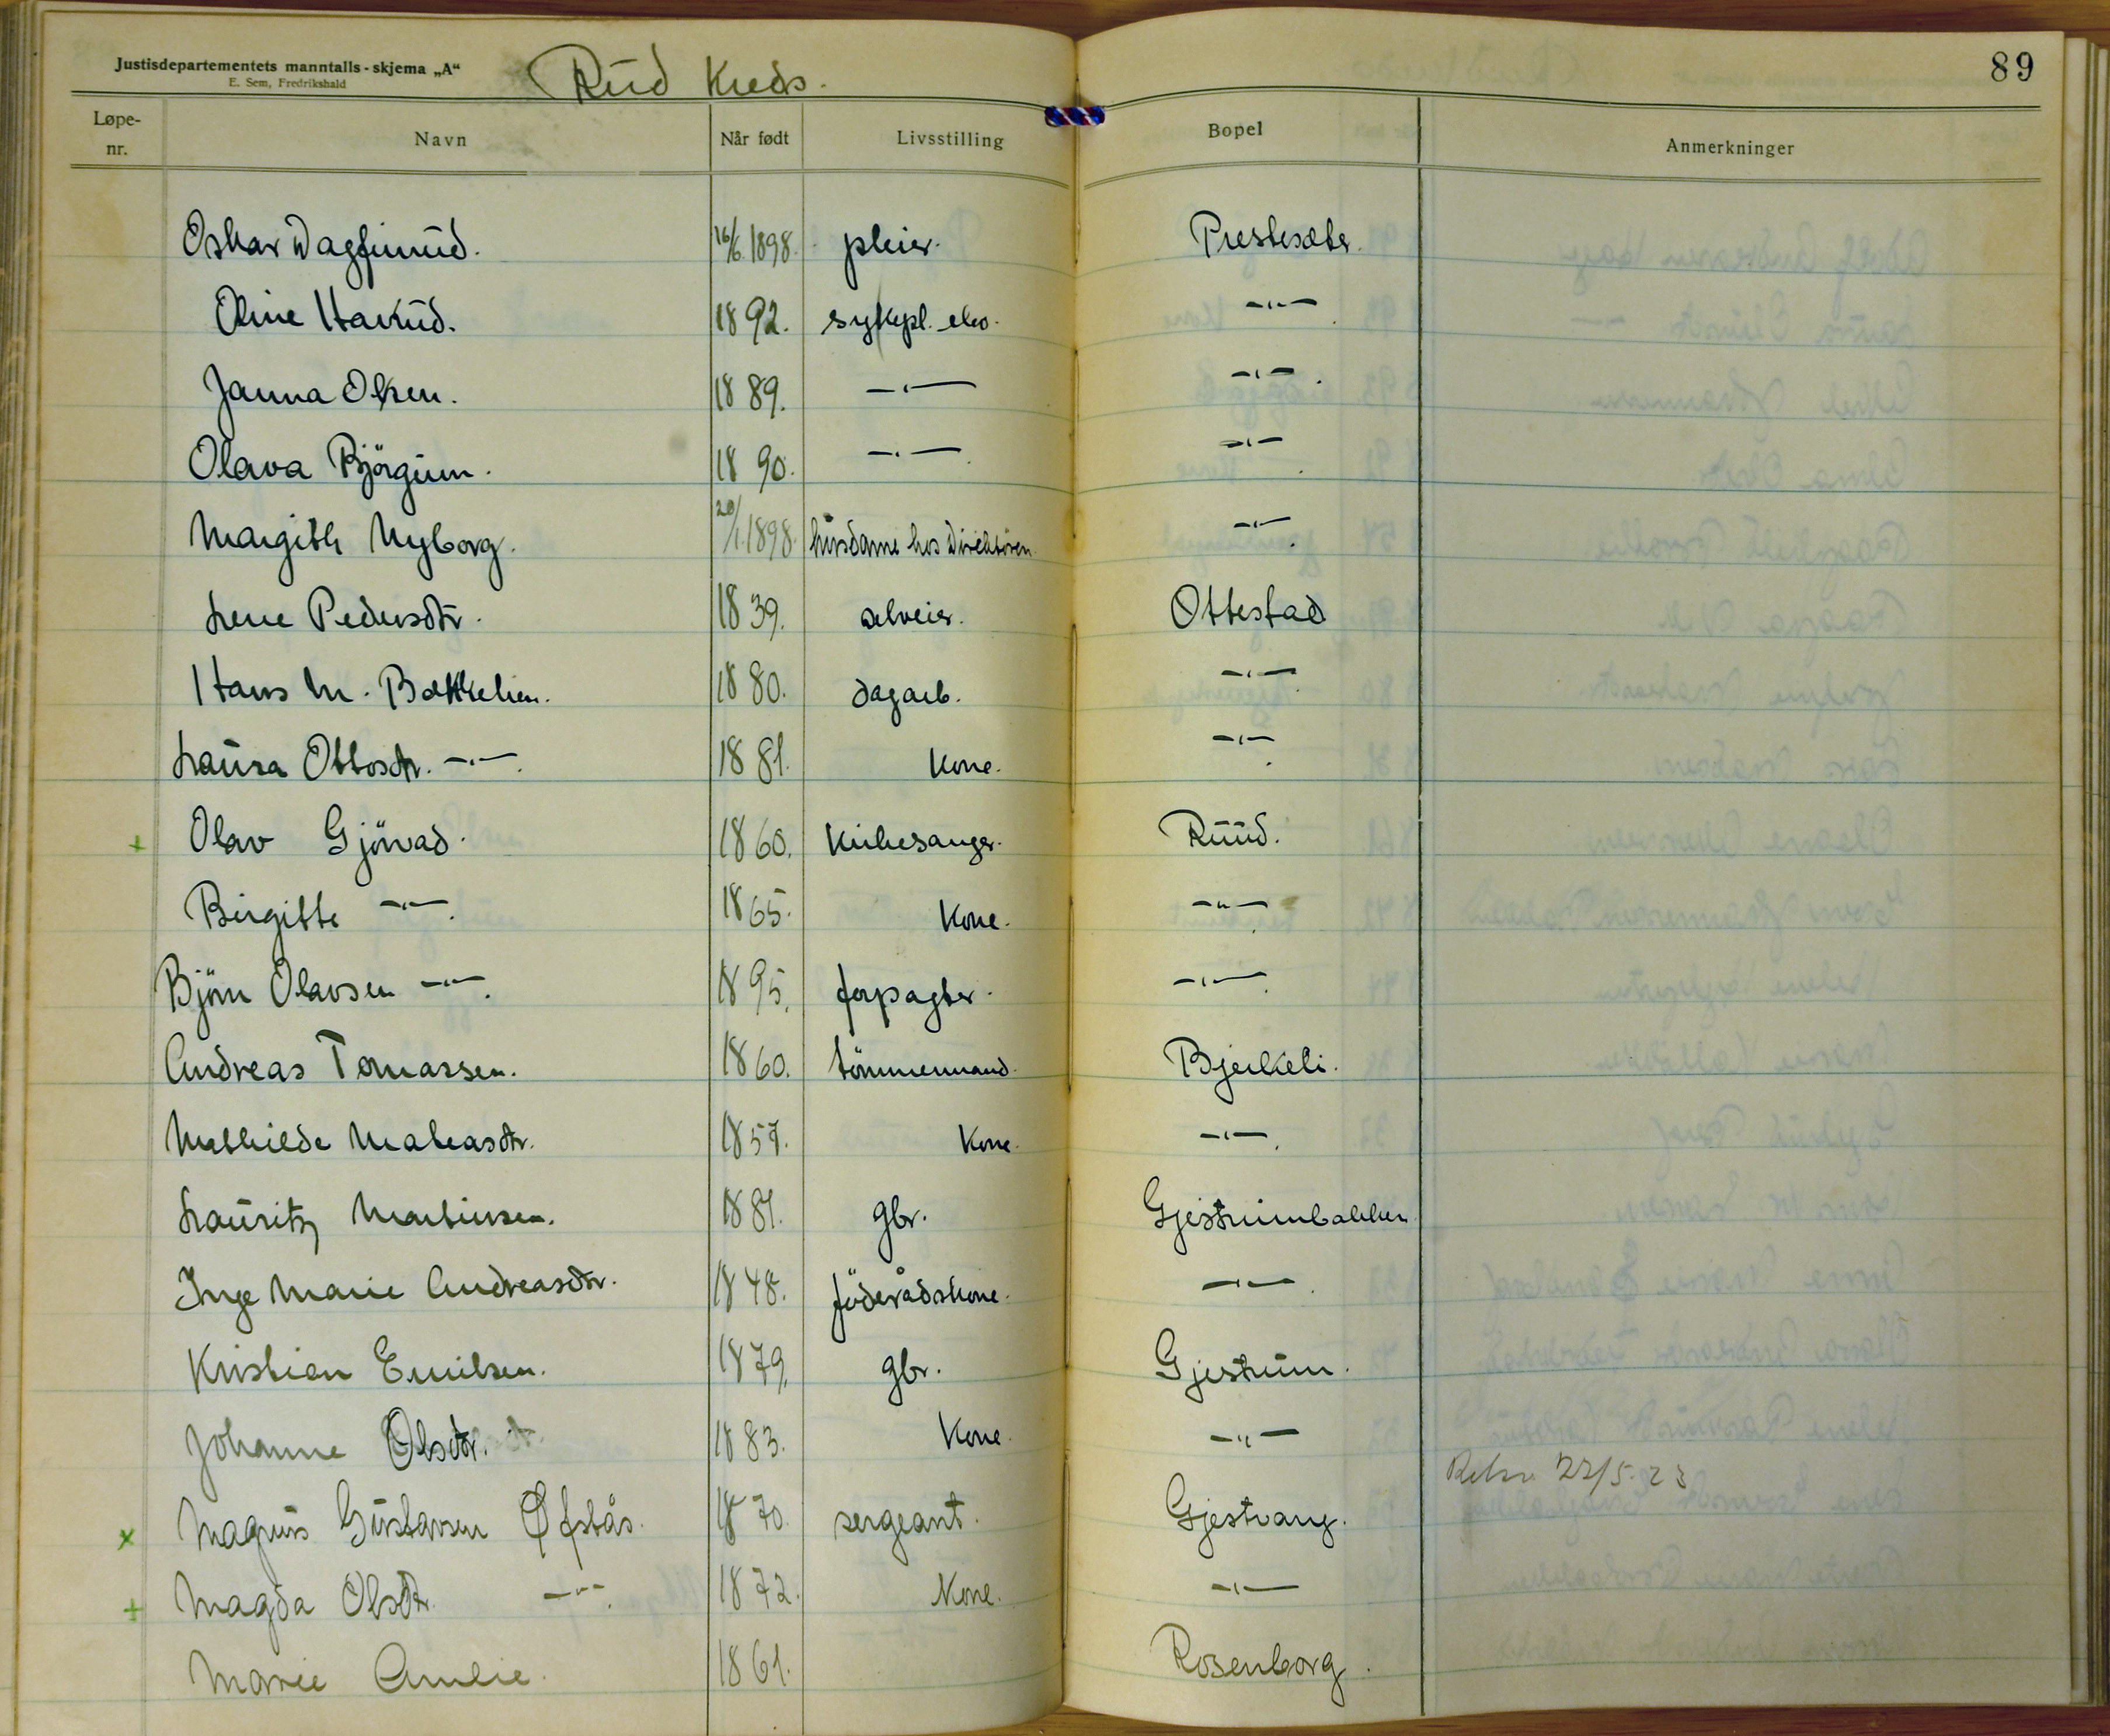 Justisdepartementets manntalls-skjema „A“
E. Sem, Fredrikshald
Rud Kreds.
89
Løpe-nr. Navn Når født Livsstilling Bopel Anmerkninger
Oskar Dagfinrud. 16/6.1898. pleier. Prestesæter.
Oline Harud. 1892. sykepl. elev. -"-
Janna Olsen. 1889. -"- -"-.
Olava Bjørgum. 1890. -"- -"-.
Margith Nyborg. 20/1.1898. husdame hos Direktøren. -"-.
Lene Pedersdtr. 1839. selveier. Ottestad
Hans M. Bækkelien. 1880. dagarb. -"-.
Laura Ottosdtr. -"-. 1881. Kone. -"-.
+ Olav Gjørvad. 1860. Kirkesanger. Ruud.
Birgitte -"-. 1865. Kone. -"-.
Bjørn Olavsen -"-. 1895. forpagter. -"-.
Andreas Tomassen. 1860. tømmermand. Bjerkeli.
Mathilde Mateasdtr. 1857. Kone. -"-.
Lauritz Martinsen. 1881. gbr. Gjestrumbakken
Inge Marie Andreasdtr. 1848. føderådskone. -"-.
Kristian Emilsen. 1879. gbr. Gjestrum.
Johanne Olsdtr. 1883. Kone. -"-
22/5.23
x Magnus Gustavsen Øfstås. 1870. sergeant. Gjestvang.
+ Magda Olsdtr. -"-. 1872. Kone. -"-
Marie Amlie. 1861. Rosenborg.